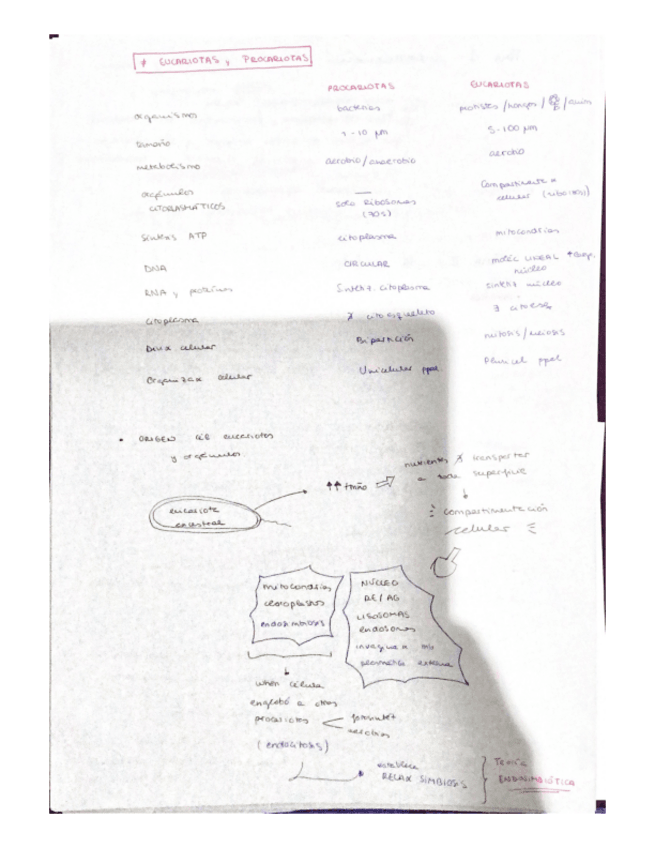 ≠ EUCARIOTAS y PROCARIOTAS
PROCARIOTAS EUCARIOTAS
organismos bacterias protistas/hongos/
tamaño 1-10 µm 5-100 µm
metabolismo aerobio/anaerobio aerobio
orgánulos CITOPLASMÁTICOS — solo Ribosomas (70s) Compartimentax celular
Síntesis ATP citoplasma mitocondrias
DNA CIRCULAR moléc LINEAL núcleo
RNA y proteínas Síntesis citoplasma síntesis núcleo
citoplasma ∄ citoesqueleto ∃ citoesq
Divix celular Bipartición mitosis/meiosis
Organizax celular Unicelular ppal Pluricel ppal
• ORIGEN DE eucariotas
y orgánulos
eucariota
ancestral
↑↑ tmño ⇒
nutrientes ∄ transportar
a toda superficie
↓
compartimentación
celular
mitocondrias
cloroplastos
endosimbiosis
NÚCLEO
RE/AG
LISOSOMAS
endosomas
invaginax mb
plasmática externa
↓
when célula
englobó a otros
procariotas < fotosintét
aerobios
(endocitosis)
establece
RELAX SIMBIOSIS
Teoría
ENDOSIMBIÓTICA